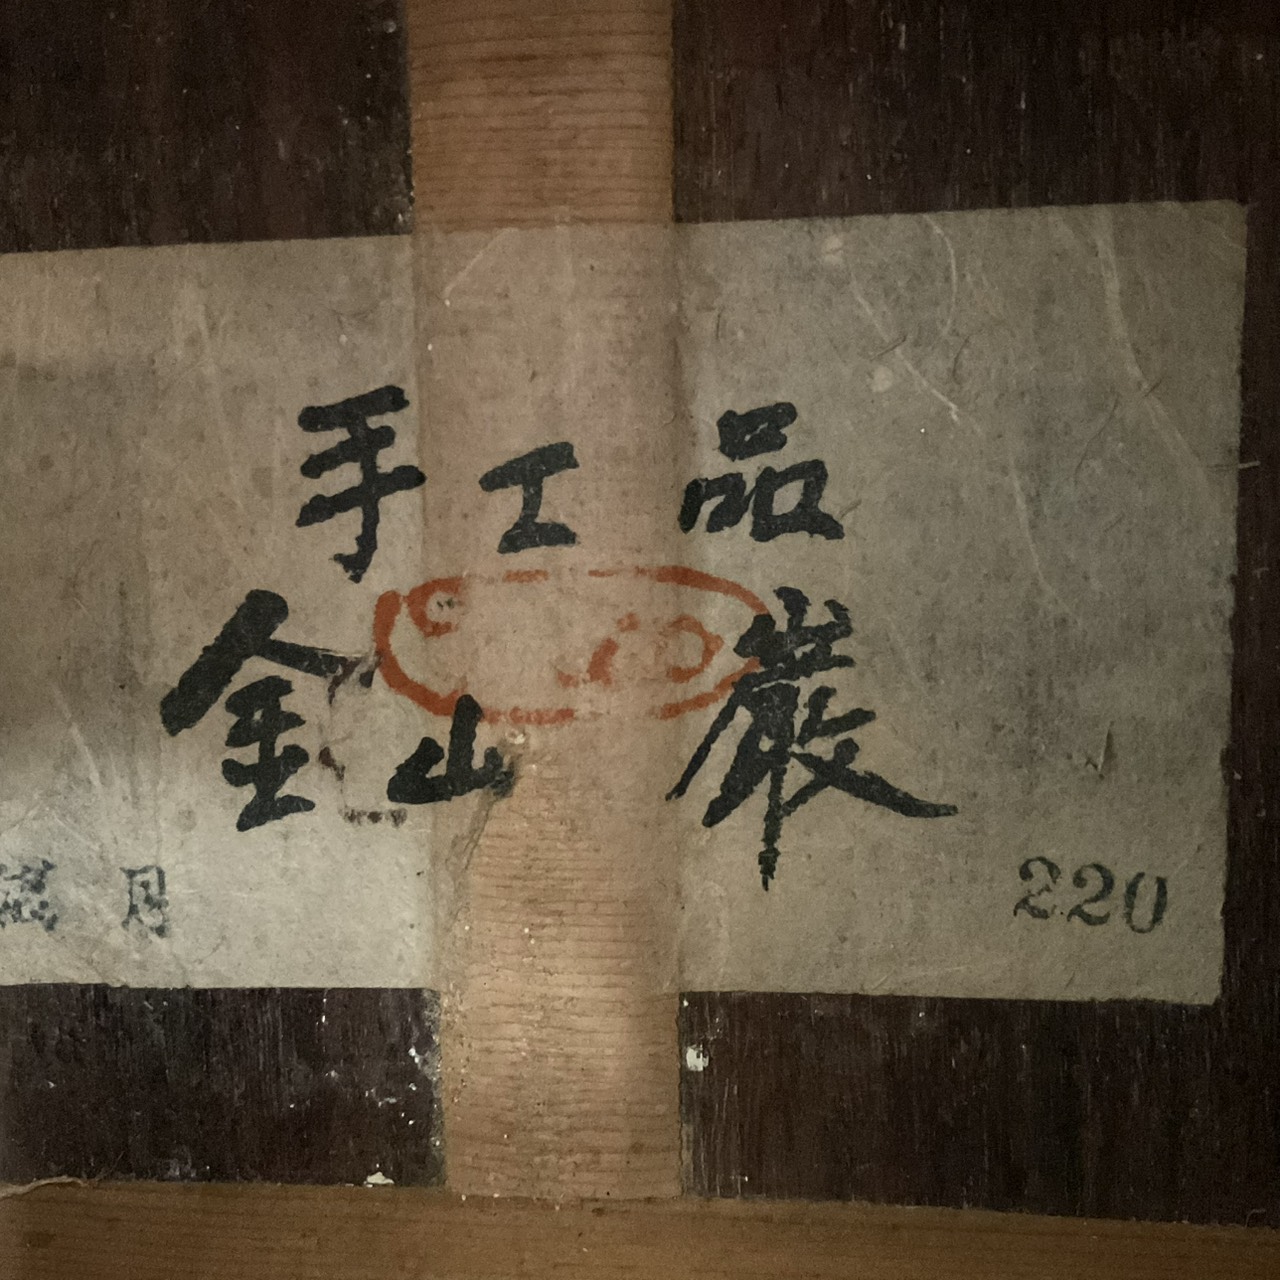 手工品
金山巖
月 220